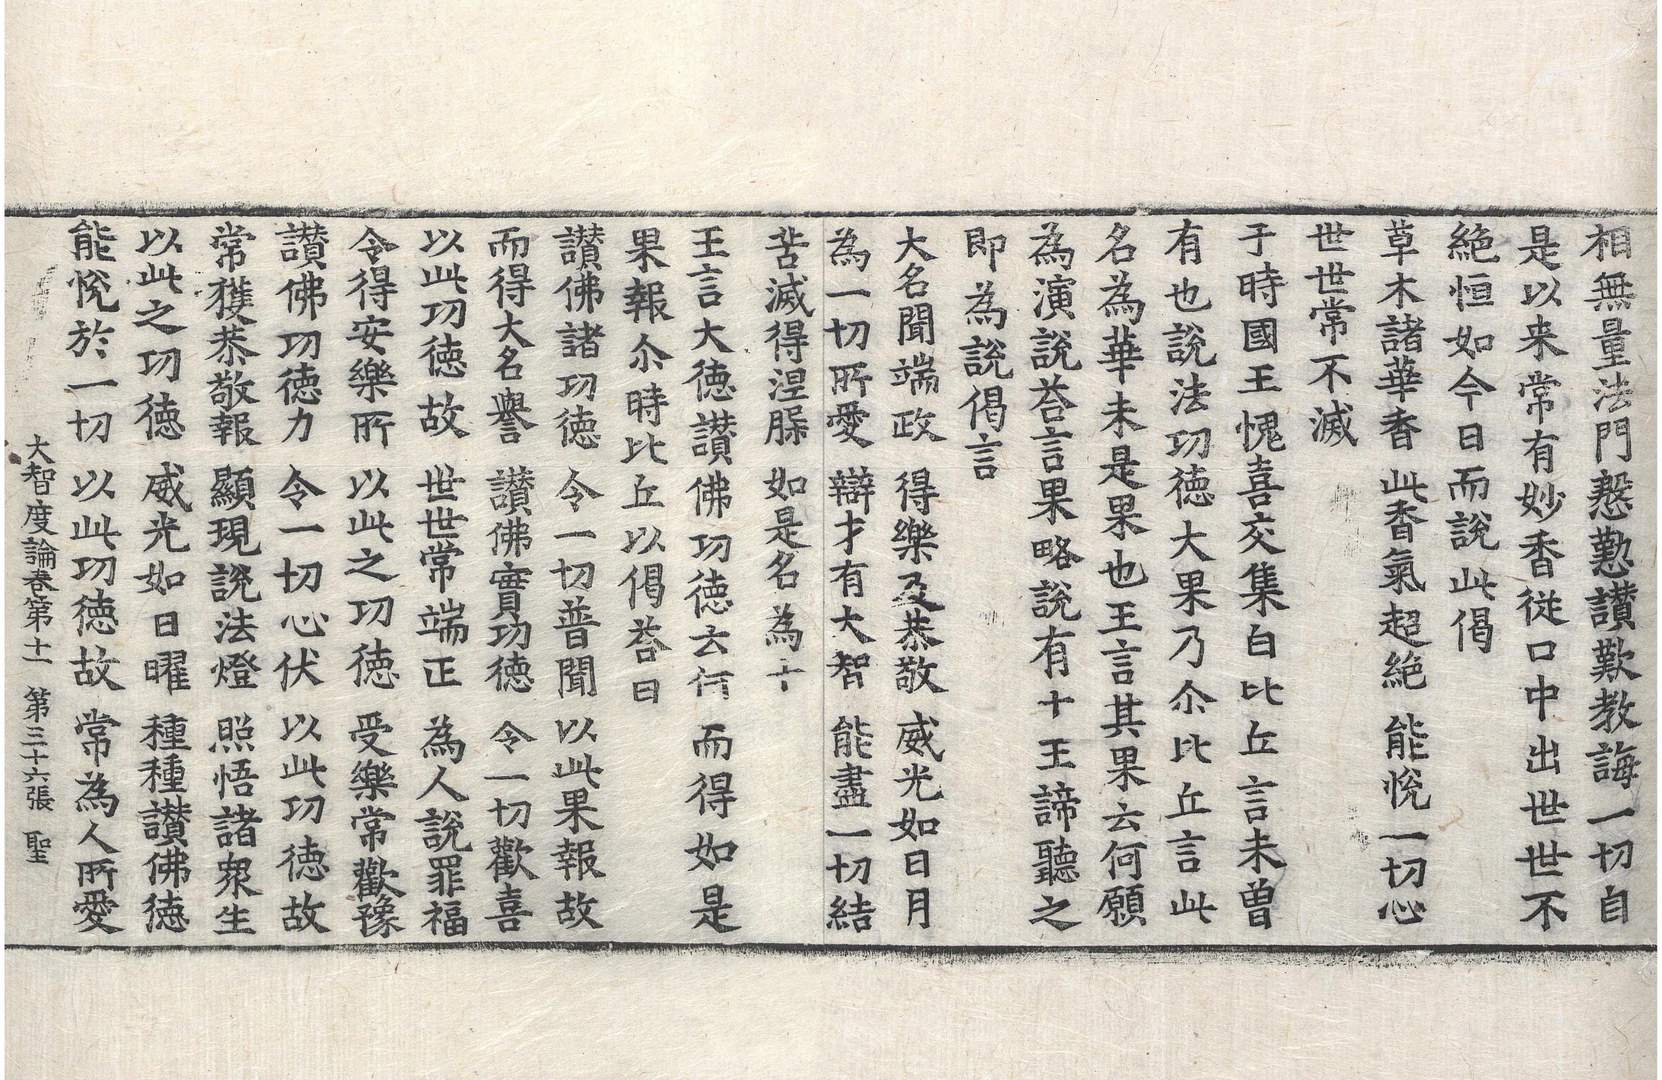 相無量法門慇懃讃歎教誨一切自
是以来常有妙香従口中出世世不
絶恒如今日而說此偈
草木諸華香 此香氣超絶 能悅一切心
世世常不滅
于時國王愧喜交集白比丘言未曾
有也說法功德大果乃尒比丘言此
名為華未是果也王言其果云何願
為演說荅言果略說有十王諦聽之
即為說偈言
大名聞端政 得樂及恭敬 威光如日月
為一切所愛 辯才有大智 能盡一切結
苦滅得涅槃 如是名為十
王言大德讃佛功德云何而得如是
果報尒時比丘以偈荅曰
讃佛諸功德 令一切普聞 以此果報故
而得大名譽 讃佛實功德 令一切歡喜
以此功德故 世世常端正 為人說罪福
令得安樂所 以此之功德 受樂常歡豫
讃佛功德力 令一切心伏 以此功德故
常獲恭敬報 顯現說法燈 照悟諸衆生
以此之功德 威光如日曜 種種讃佛德
能悅於一切 以此功德故 常為人所愛
大智度論卷第十一 第三十六張 聖